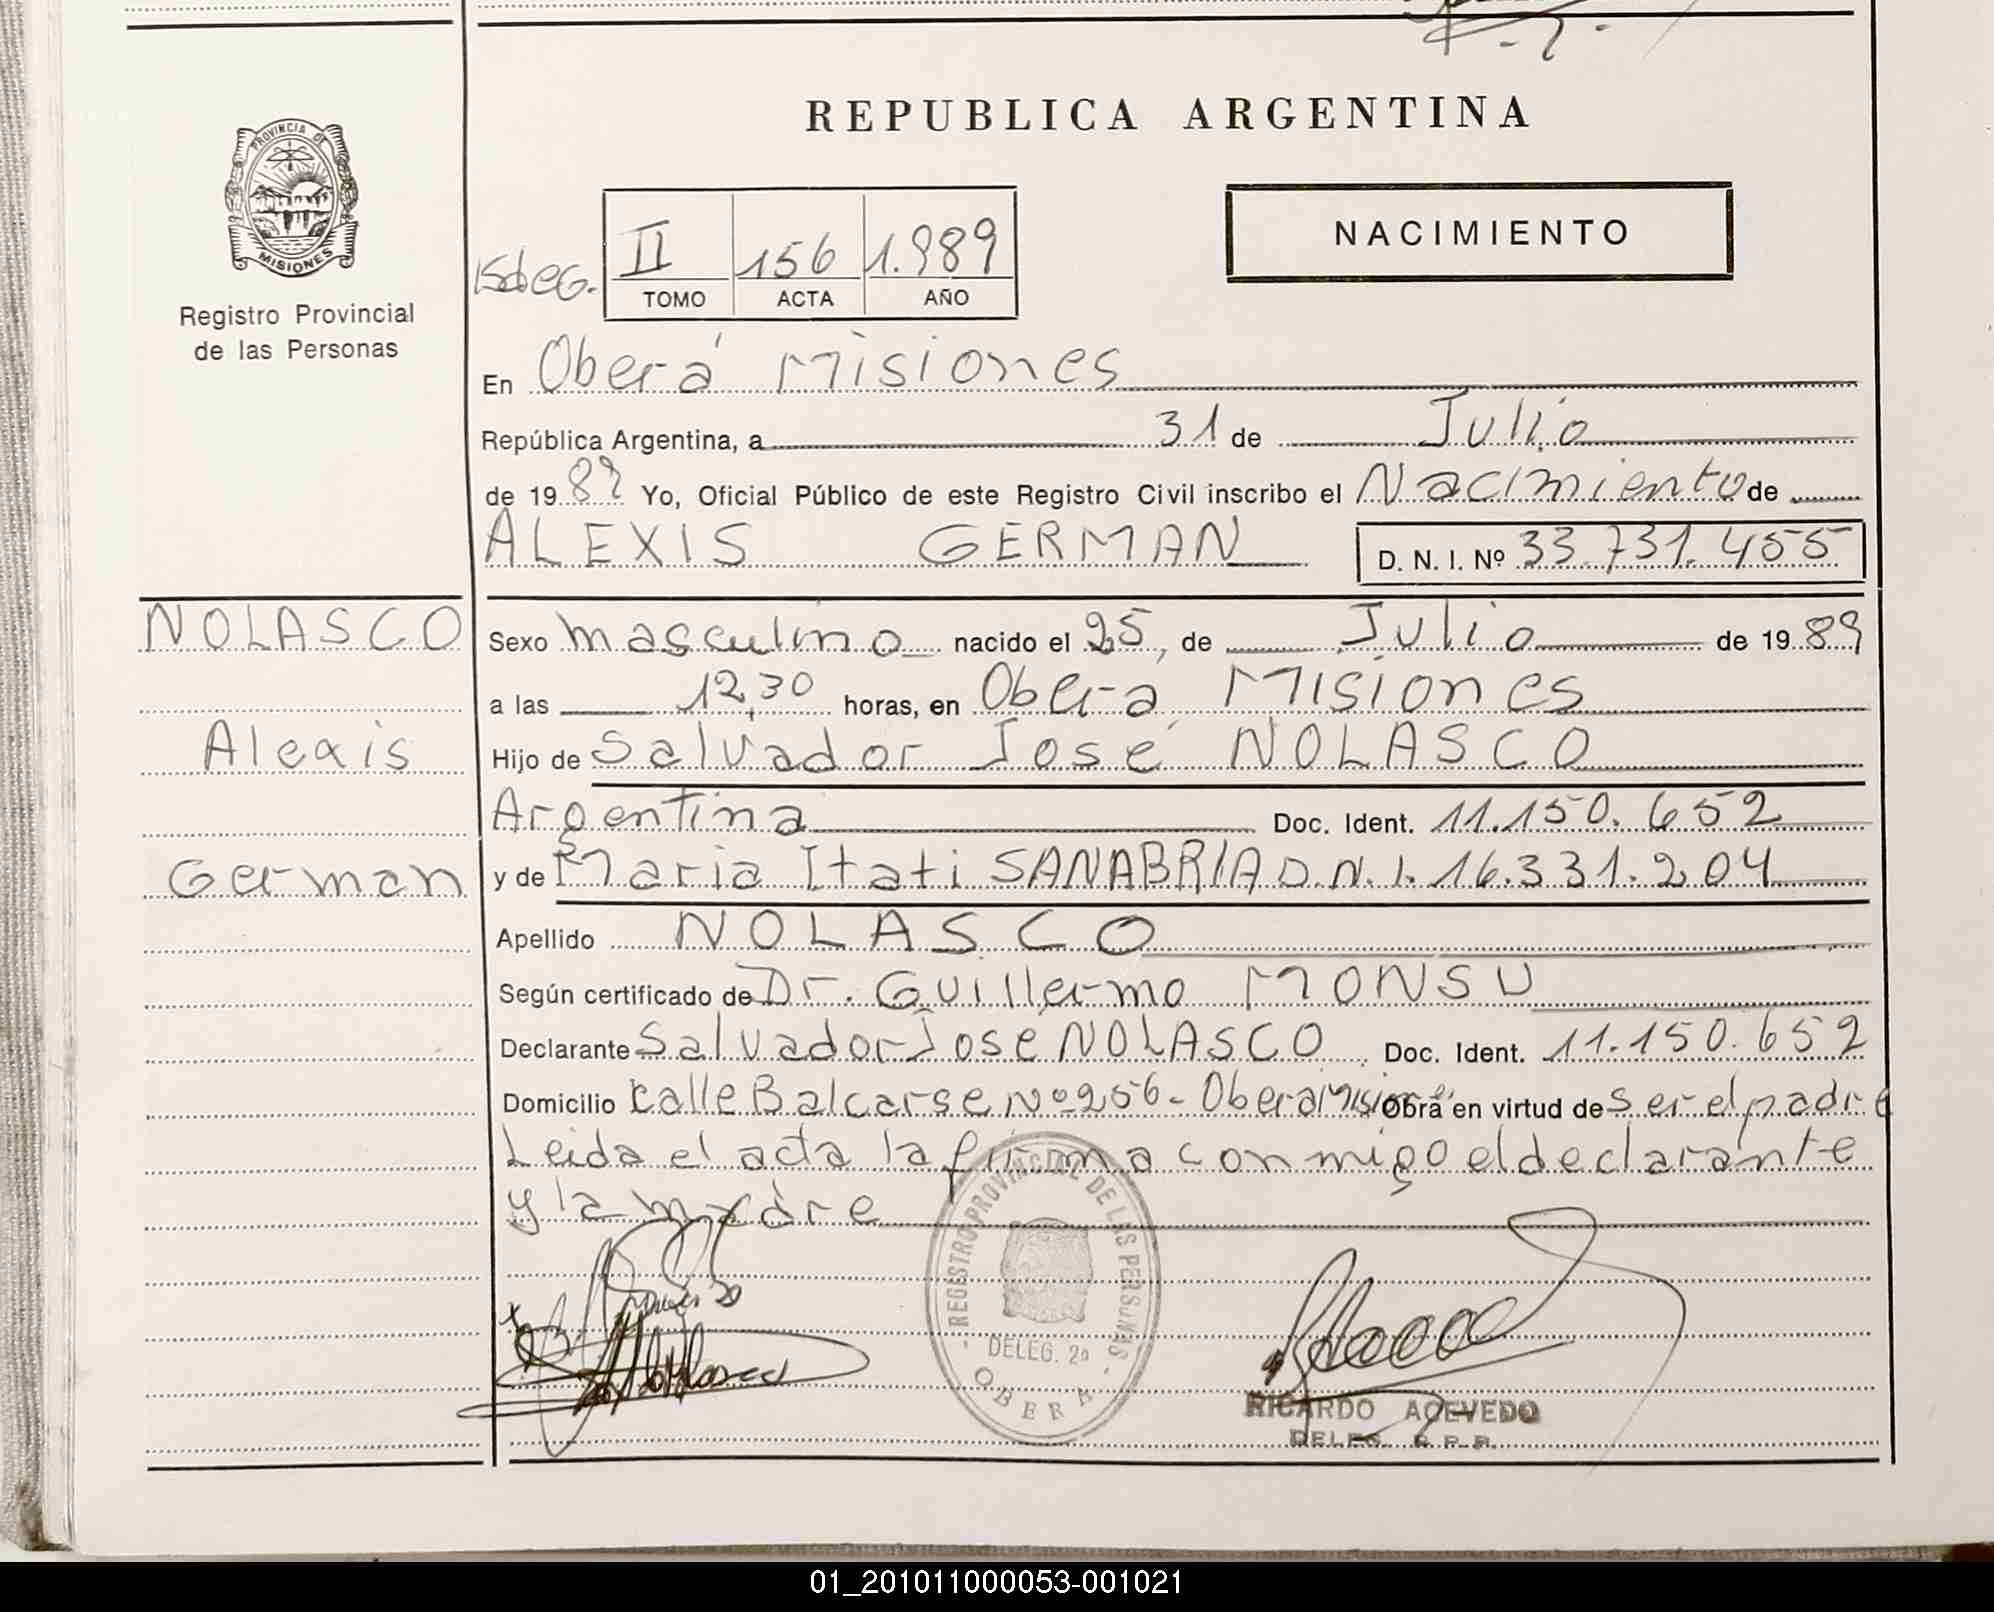 REPUBLICA ARGENTINA
PROVINCIA DE
MISIONES
Registro Provincial
de las Personas
II 156 1.989
TOMO ACTA AÑO
NACIMIENTO
En Oberá Misiones
República Argentina, a 31 de Julio
de 19 89 Yo, Oficial Público de este Registro Civil inscribo el Nacimiento de
ALEXIS GERMAN D. N. I. Nº 33.731.455
NOLASCO
Alexis
German
Sexo masculino nacido el 25, de Julio de 19 89
a las 12,30 horas, en Oberá Misiones
Hijo de Salvador José NOLASCO
Argentina Doc. Ident. 11.150.652
y de Maria Itati SANABRIA D.N.I. 16.331.204
Apellido NOLASCO
Según certificado de Dr. Guillermo MONSU
Declarante Salvador José NOLASCO Doc. Ident. 11.150.652
Domicilio calle Balcarse Nº 256 - Oberá Misiones Obra en virtud de ser el padre
Leida el acta la firma conmigo el declarante
y la madre
REGISTRO PROVINCIAL DE LAS PERSONAS
DELEG. 2a
OBERA
RICARDO ACEVEDO
DELEG. R.P.P.
01_201011000053-001021